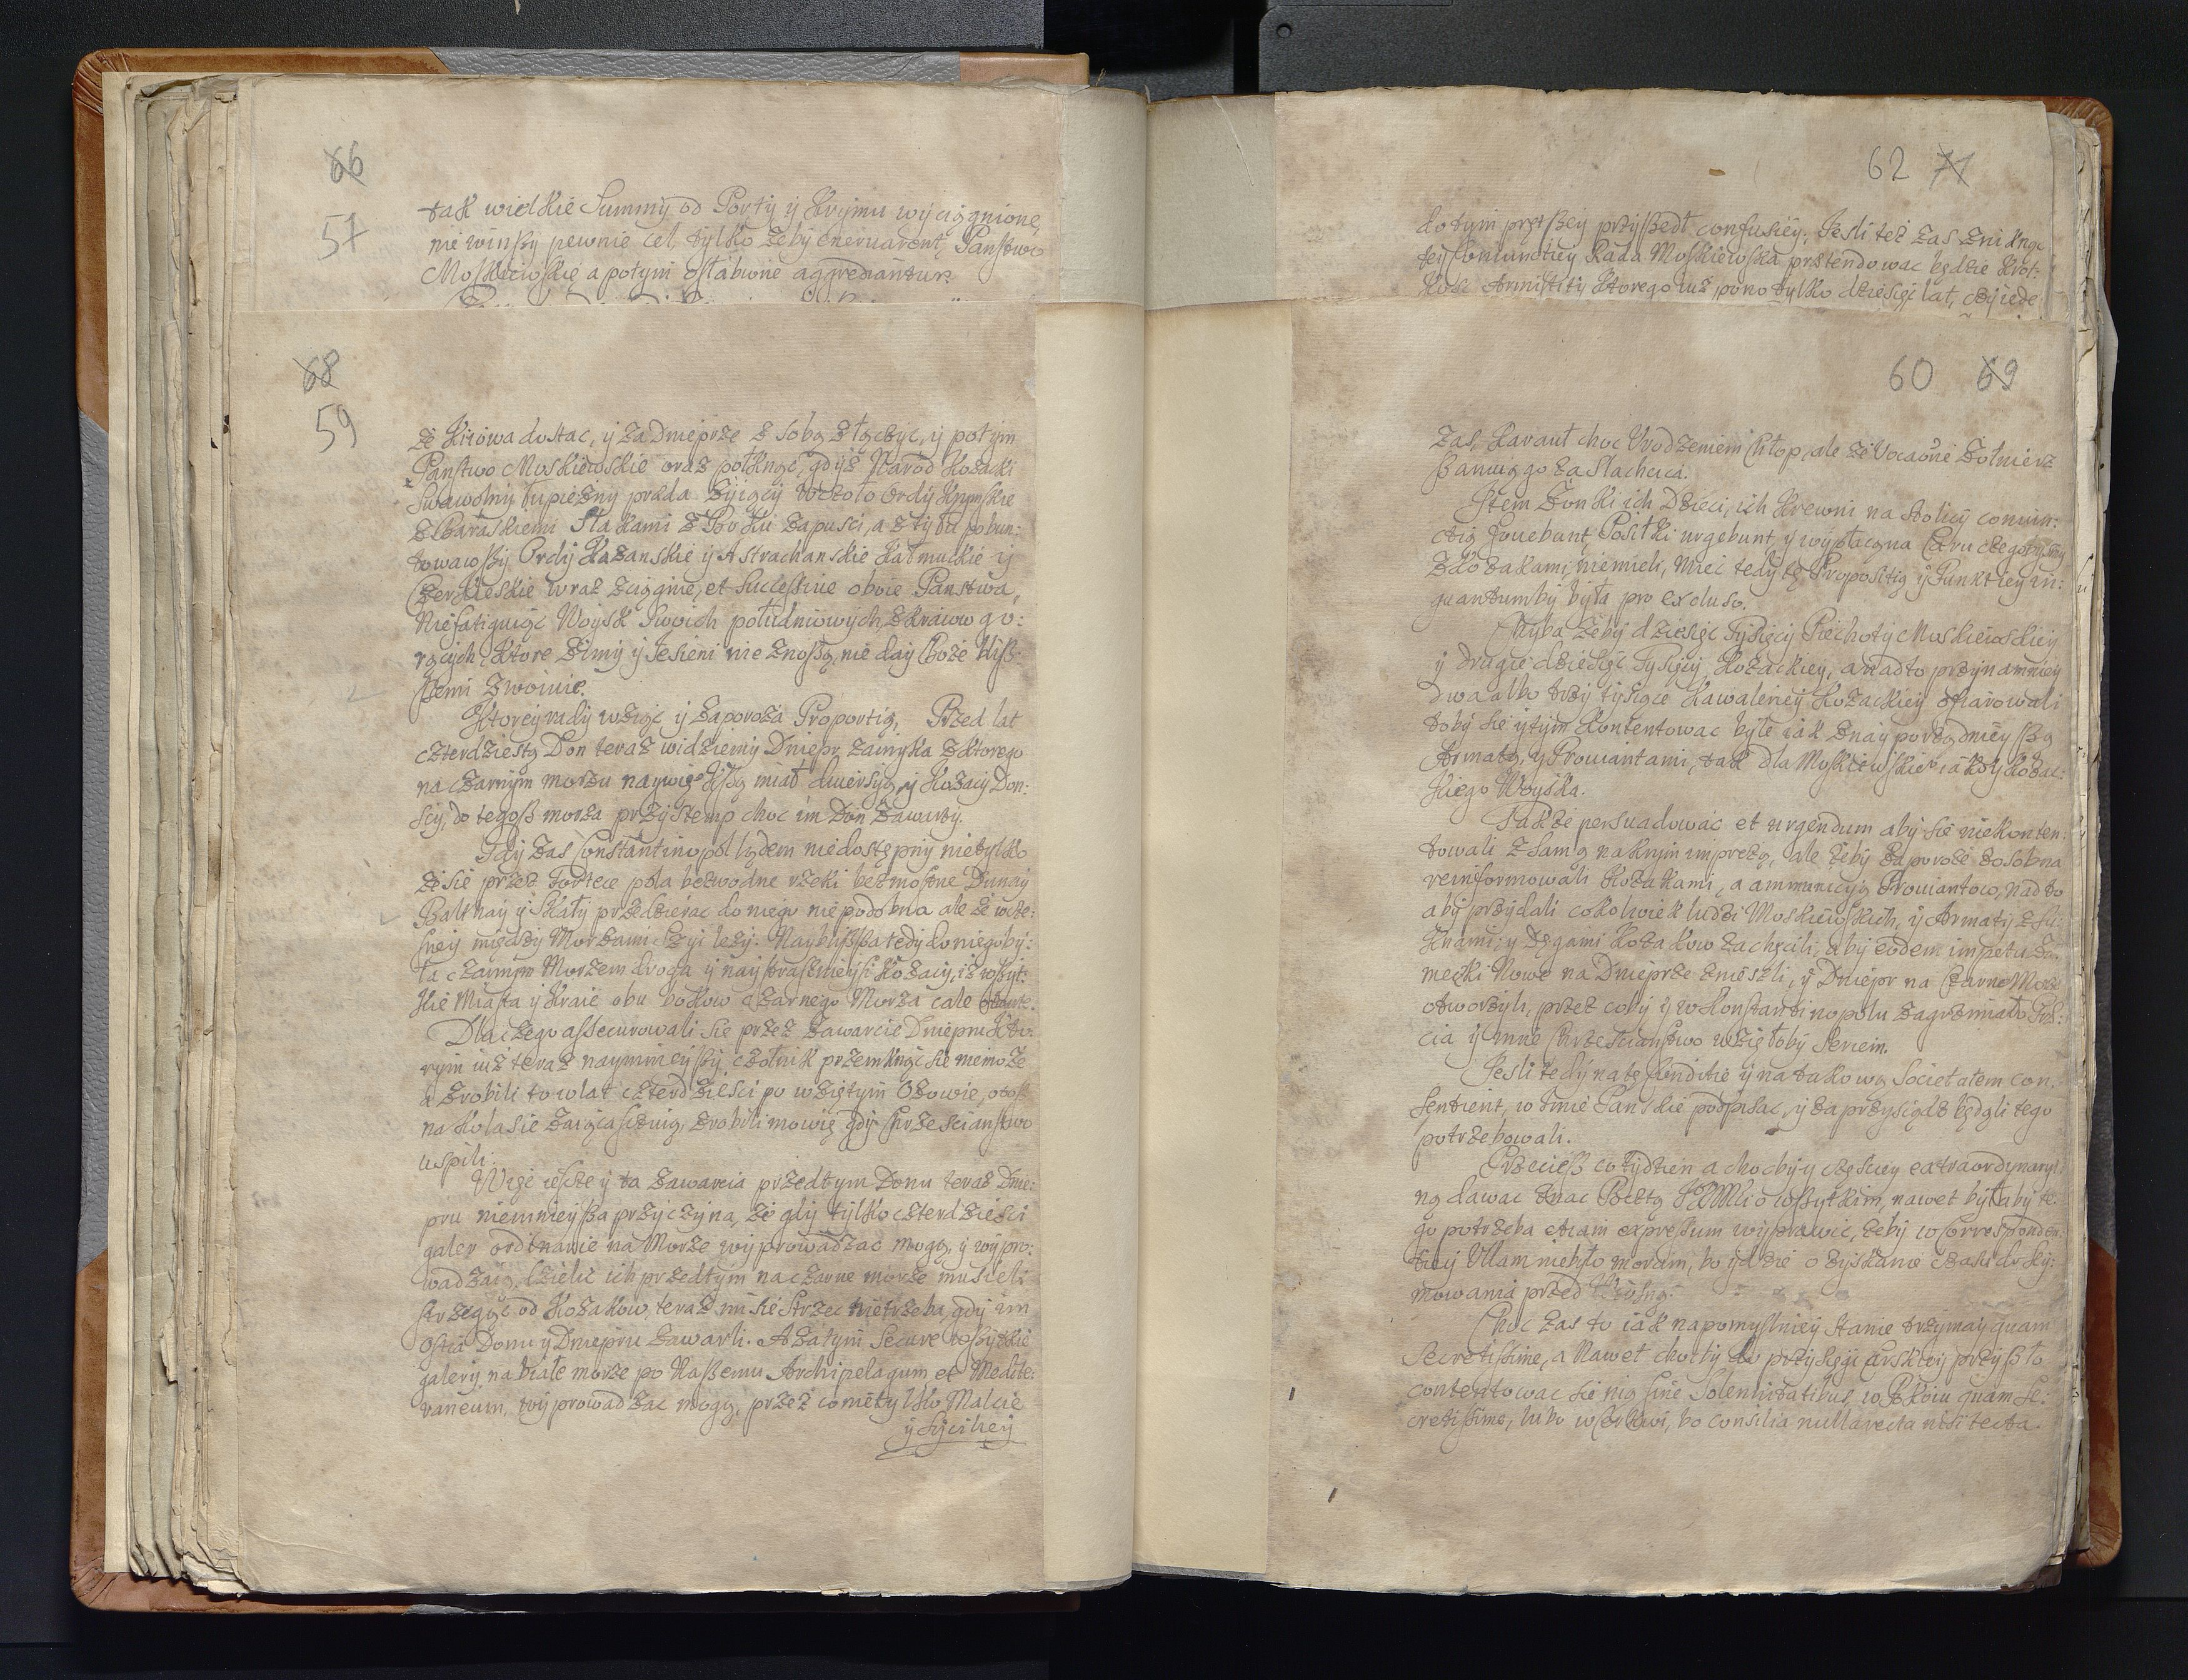 66
57
tak wielkie Summy od Porty y Krymu wyciągnione,
nie winszy pewnie cel, tylko żeby enervarent, Panstwo
Moskiewskie a potym osłabione aggrediantur.
68
59
że Kiiowa dostac, y za Dnieprze z sobą złączyc, y potym
Panstwo Moskiewskie oraz połknąc, gdyż Narod Kozacki
Swawolny łupiezny præda żyiący wespoło Ordy Krymskie
szlakami zapusci, a z tyłu pobun:
towawszy Ordy Kazanskie y Astrachanskie Kałmuckie y
Czerkieskie wraz zciągnie, et successive oboie Panstwa,
Niefatiguiąc Woysk Swoich południowych, z Kraiow go:
rących, Ktore Zimy y Jesieni nie znoszą, nie day Boże bliż:
szemi zwoiuie.
Ktorey rady wziąc y Zaporoża Proportią, Przed lat
czterdziestą Don teraz widziemy Dniepr zamyka z ktorego
na Czarnym morzu naywiększą miał diversyą, y Kozacy Don:
scy, do tegosz morza przystemp choc im Don zawarty.
Gdy zas Constantinopol lądem niedostępny nietylko
że sie przez Fortece pola bezwodne rzeki bezmostne Dunay
Bałkany y Skały przedzierac do niego niepodobna ale że w cie:
sney między Morzami Szyi leży. Naybliższa tedy do niego by:
ła czarnym Morzem droga y naystrasznieysi Kozacy, iż wszyt:
kie Miasta y Kraie obu bokow czarnego Morza cale
Dla czego assecurowali sie przez zawarcie Dniepru Kto:
rym iuż teraz naymnieyszy czołnik przemknąc sie niemoże
a zrobili to w lat czterdziesci po wziętym Ozowie, otosz
na Kola sie zrobili mowię gdy Chrzescianstwo
uspili.
Więc ieszcze y ta zawarcia przedtym Donu teraz Dnie:
pru niemnieysza przyczyna, że gdy tylko czterdziesci
galer ordinarie na Morze wyprowadzac mogą, y wypro:
wadzaią, dzielic ich przedtym na czarne morze musieli
strzegąc od Kozakow, teraz im sie strzec nietrzeba, gdy im
Ostia Donu y Dniepru zawarli. A zatym secure wszytkie
galery na białe morze po Naszemu Archipelagum, et Medite:
raneum, wyprowadzac mogą, przez co nietylko Malcie
y Sycilyey
62 71
do tym prętszey przyszedł confusiey. Jesli też zas
tey Coniunctiey Rada Moskiewska prætendowac będzie Krot:
kosc Armistity Ktorego iuż pono tylko dziesięc lat,
60 69
zas, Kavaut choc Urodzeniem Chłop, ale że Vocavie Żołnierz
szanuią go za Slachcica.
Item Żonki ich Dzieci, ich Krewni na stolicy coniun:
ctią fovebunt, Posiłki urgebunt, y wypłacą na Caru czegobysmy
z Kozakami, niemieli, Miec tedy tę Propositią y Punkt iey in:
quantumby była pro excluso.
Chyba żeby dziesięc Tysięcy Piechoty Moskiewskiey
y drugie dziesięc Tysięcy Kozackiey, a nadto przynamniey
dwa albo trzy tysiące Kawaleriey Kozackiey ofiarowali
toby sie y tym Kontentowac byle iak znayporządnieyszą
Armatą, y Prowiantami, tak dla Moskiewskie° iako y Kozac:
kiego Woyska.
Także persuadowac et urgendum aby sie niekonten:
towali z samą na Krym imprezą, ale żeby Zaporoże osobna
reinformowali Kozakami, a ammunicyą Prowiantow, nadto
aby przydali cokolwiek ludzi Moskiewskich, y Armaty z Su:
knami, y Kozakow zachęcili, aby eodem impetu Za:
meczki Nowe na Dnieprze zniesli, y Dniepr na Czarne Morze
otworzyli, przez coby y w Konstantinopolu zagrzmiało
cia y inne Chrzescianstwo wzięłoby Seriem.
Jesli tedy na te Conditie y na takową Societatem con:
sentient, w Imie Panskie podpisac, y zaprzysiądz będąli tego
potrzebowali.
Przeciesz co tydzien a chocby y częsciey extraordynaryi:
ną dawac znac Pocztą o wszytkim, nawet byłaby te:
go potrzeba etiam expressum wyprawic, żeby w Correspondenc:
tiey Ullam niebyło moram, bo ydzie o zyskanie czasu do
mowania przed Wiosną.
Choc zas to iak napomyslniey stanie trzymay quam
Secretissime, a Nawet chocby do przysięgi carskiey przyszło
contentowac sie nią sine Solennitatibus, w Pokoiu quam Se:
cretissime, lubo w Cerkwi, bo consilia nulla recta nisi tecta.